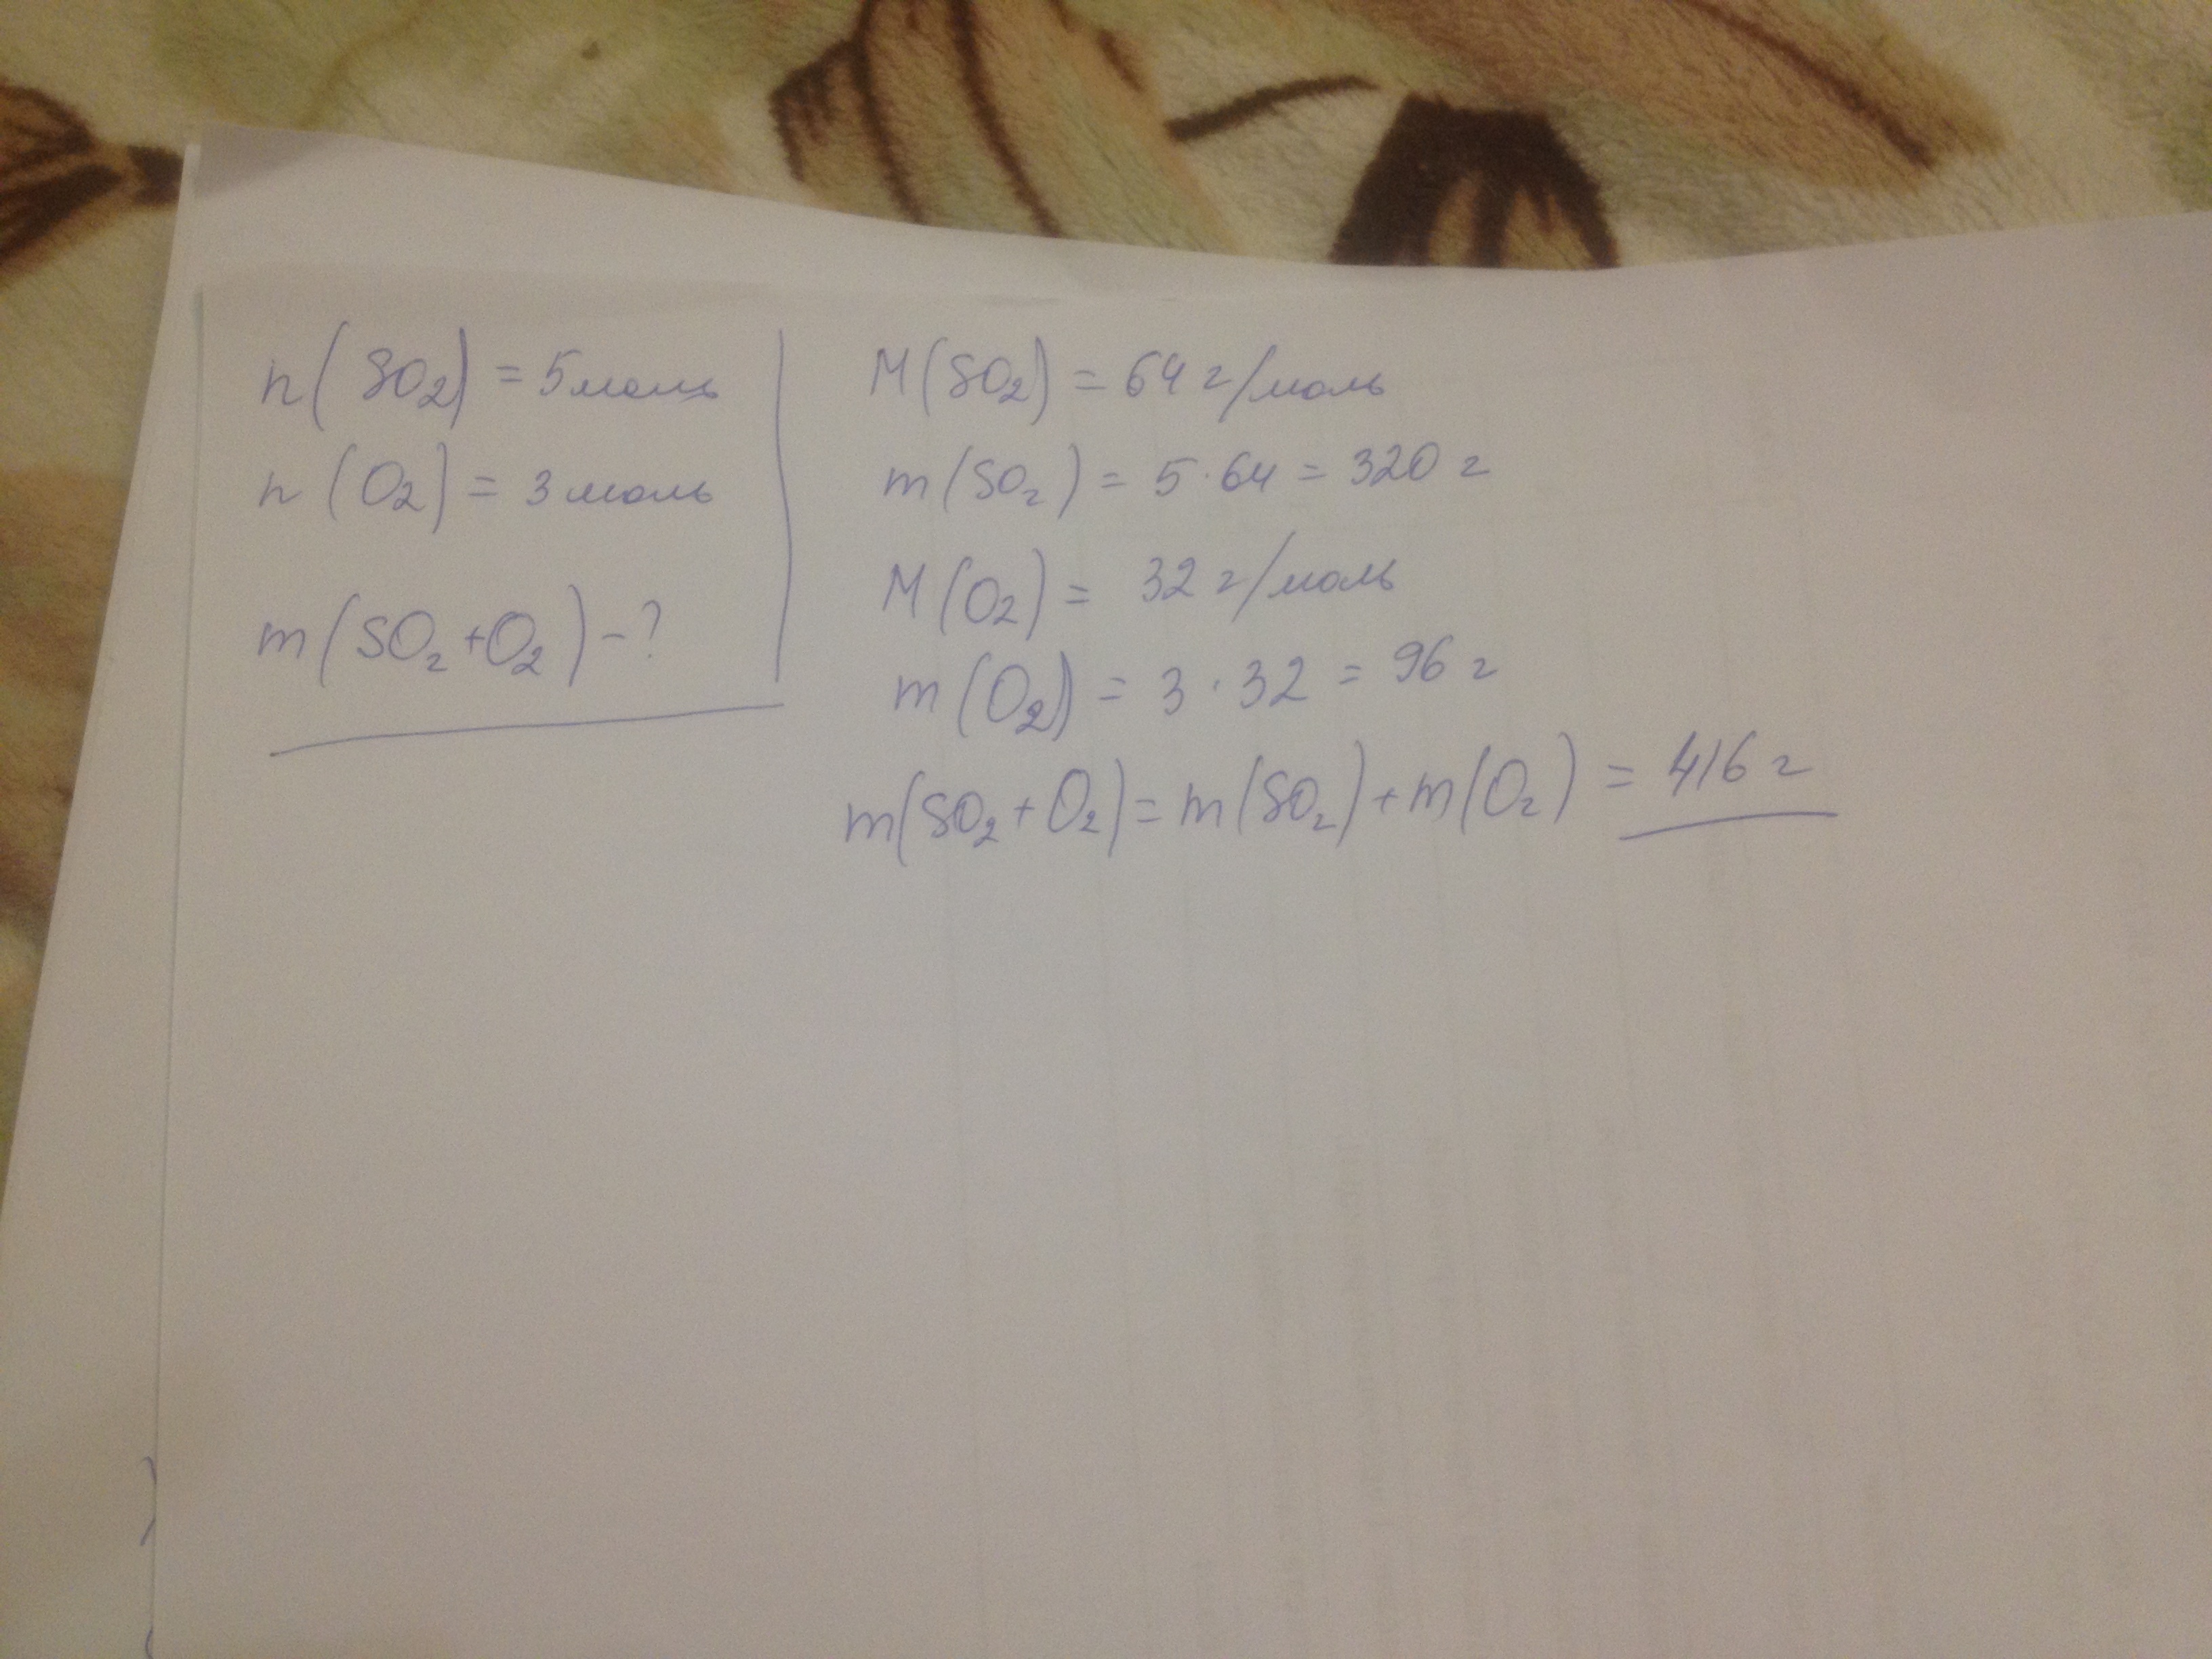 n(SO₂) = 5 моль
n(O₂) = 3 моль
m(SO₂+O₂) - ?
M(SO₂) = 64 г/моль
m(SO₂) = 5·64 = 320 г
M(O₂) = 32 г/моль
m(O₂) = 3·32 = 96 г
m(SO₂+O₂) = m(SO₂)+m(O₂) = 416 г